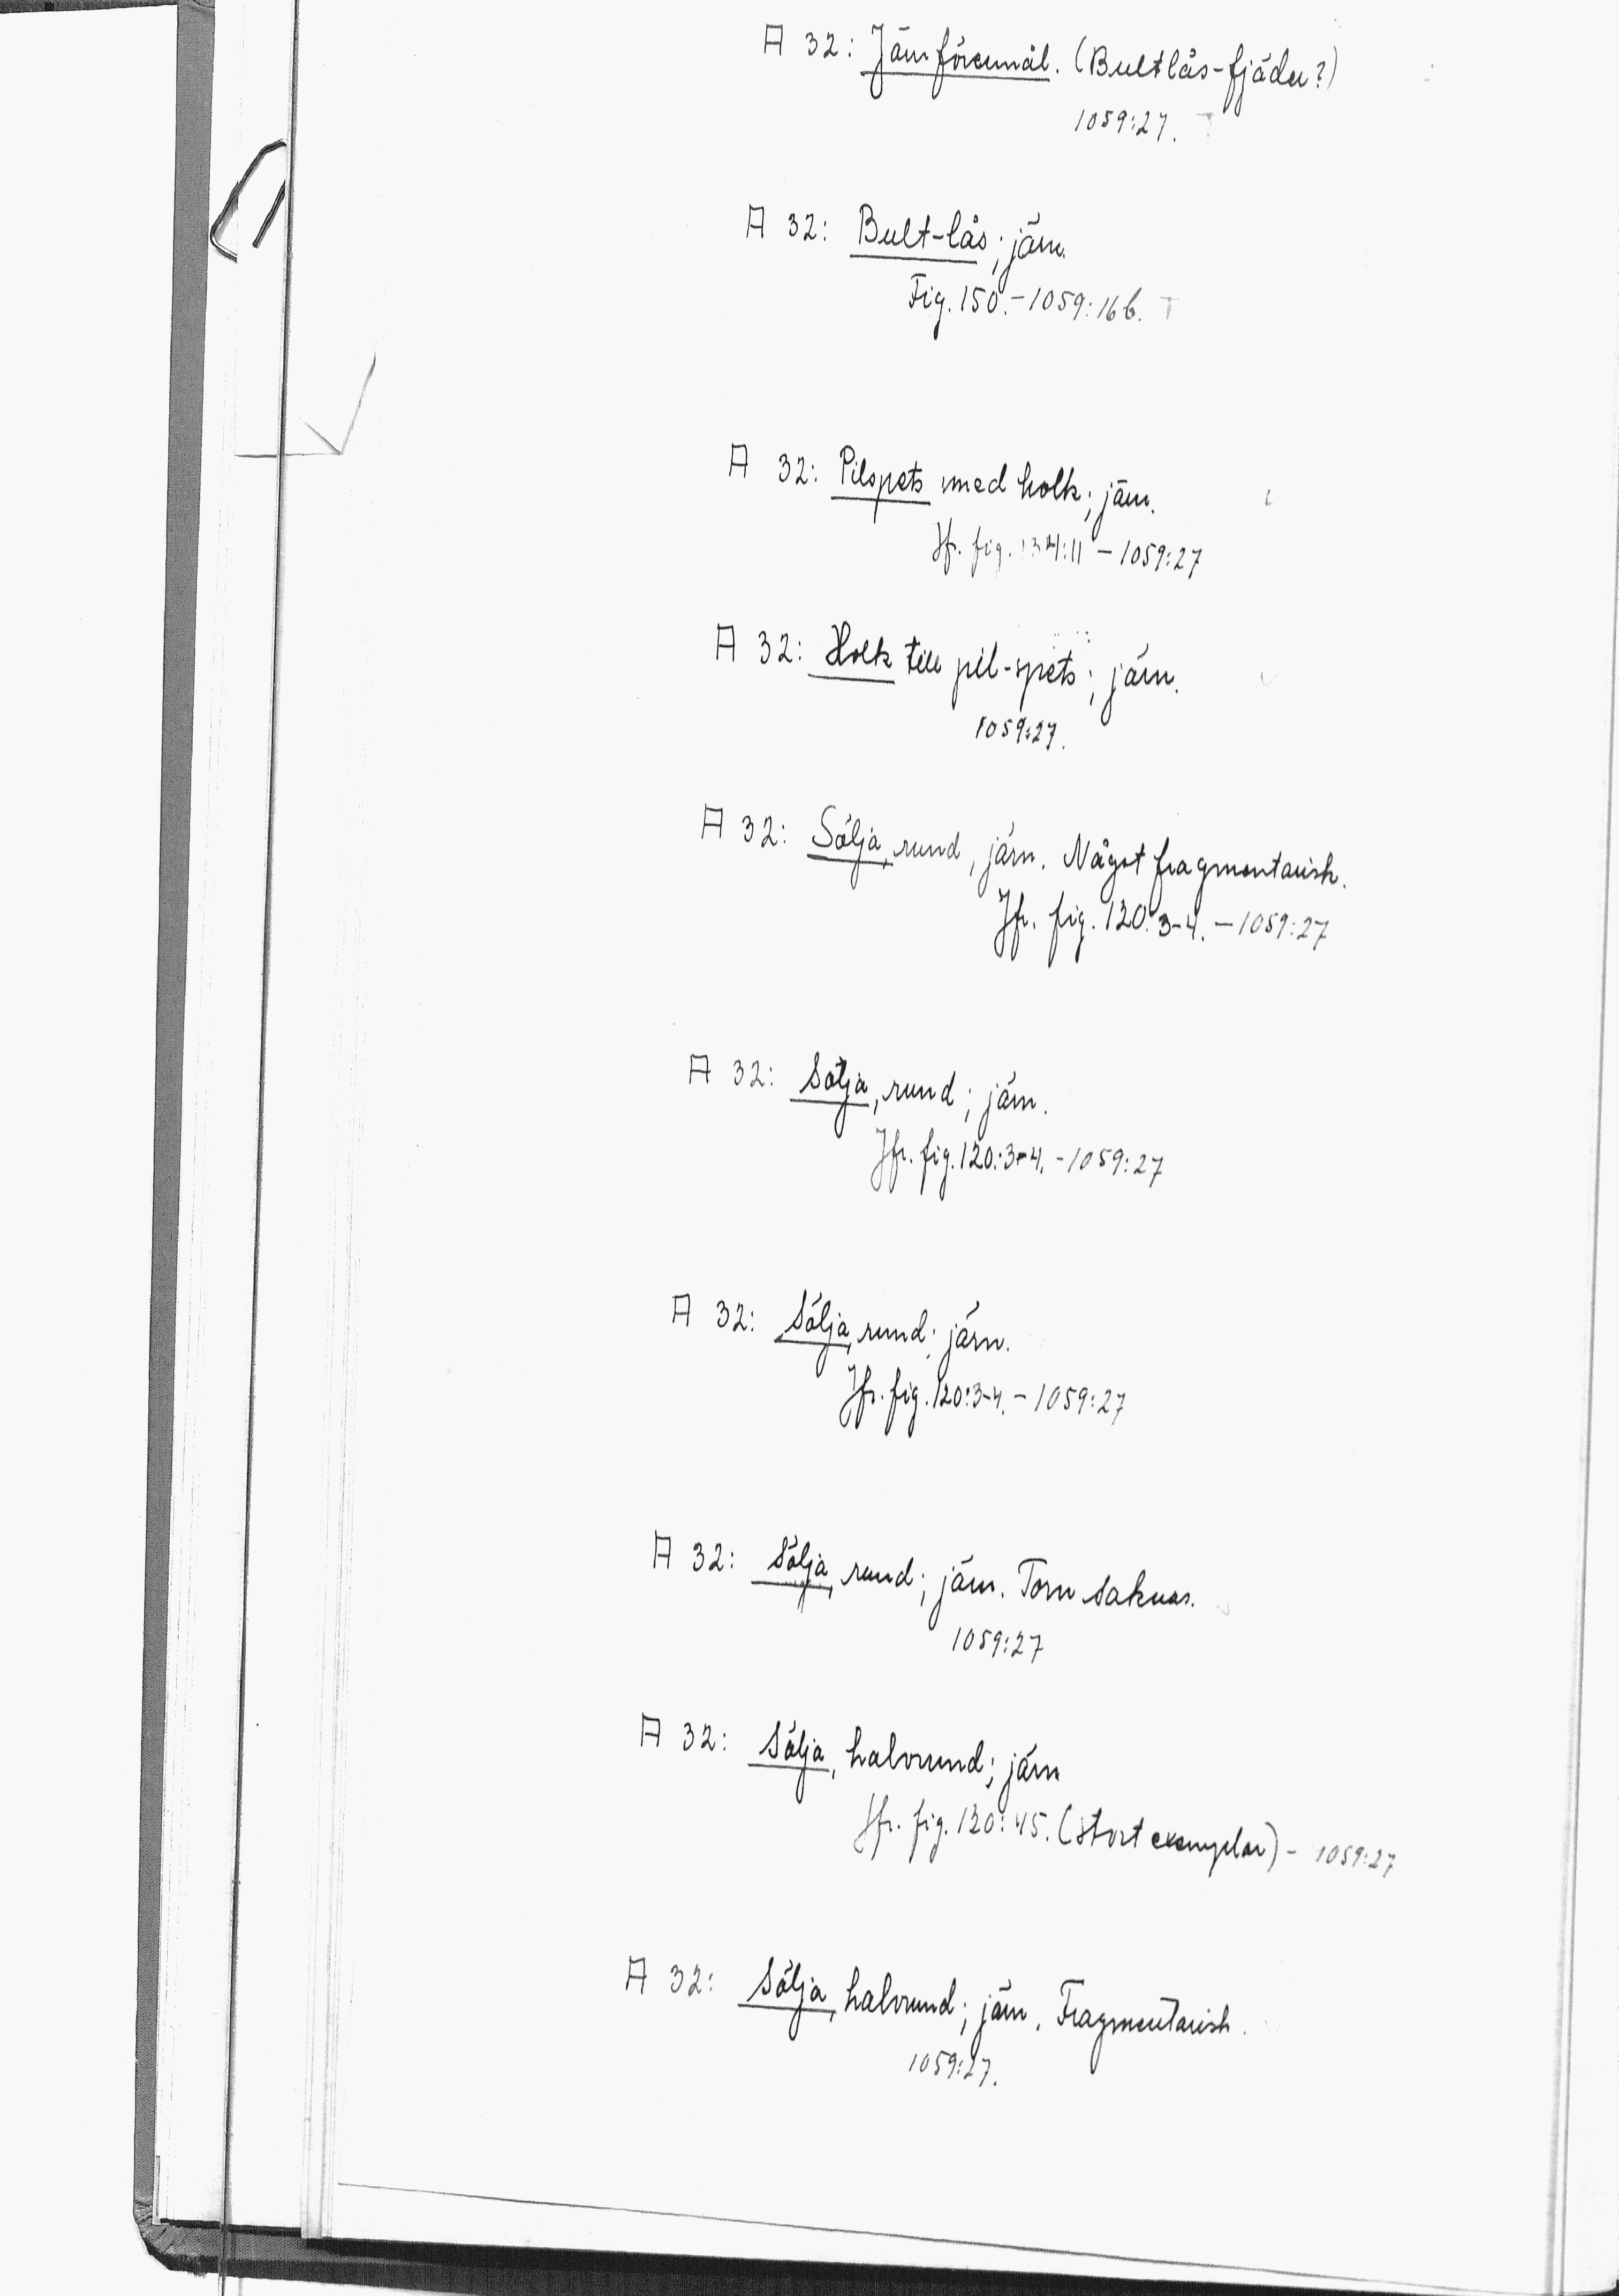 A 32: Järnföremål. (Bultlås-fjäder?)
1059:27.
A 32: Bult-lås; järn.
Fig. 150. - 1059:16b.
A 32: Pilspets med holk; järn.
Jfr. fig. 134:11 - 1059:27
A 32: Holk till pil-spets; järn.
1059:27.
A 32: Sölja, rund, järn. Något fragmentarisk.
Jfr. fig. 120:3-4. - 1059:27
A 32: Sölja, rund; järn.
Jfr. fig. 120:3-4. - 1059:27
A 32: Sölja, rund; järn.
Jfr. fig. 120:3-4. - 1059:27
A 32: Sölja, rund; järn. Torn saknas.
1059:27
A 32: Sölja, halvrund; järn
Jfr. fig. 120:45. (stort exemplar) - 1059:27
A 32: Sölja, halvrund; järn. Fragmentarisk.
1059:27.